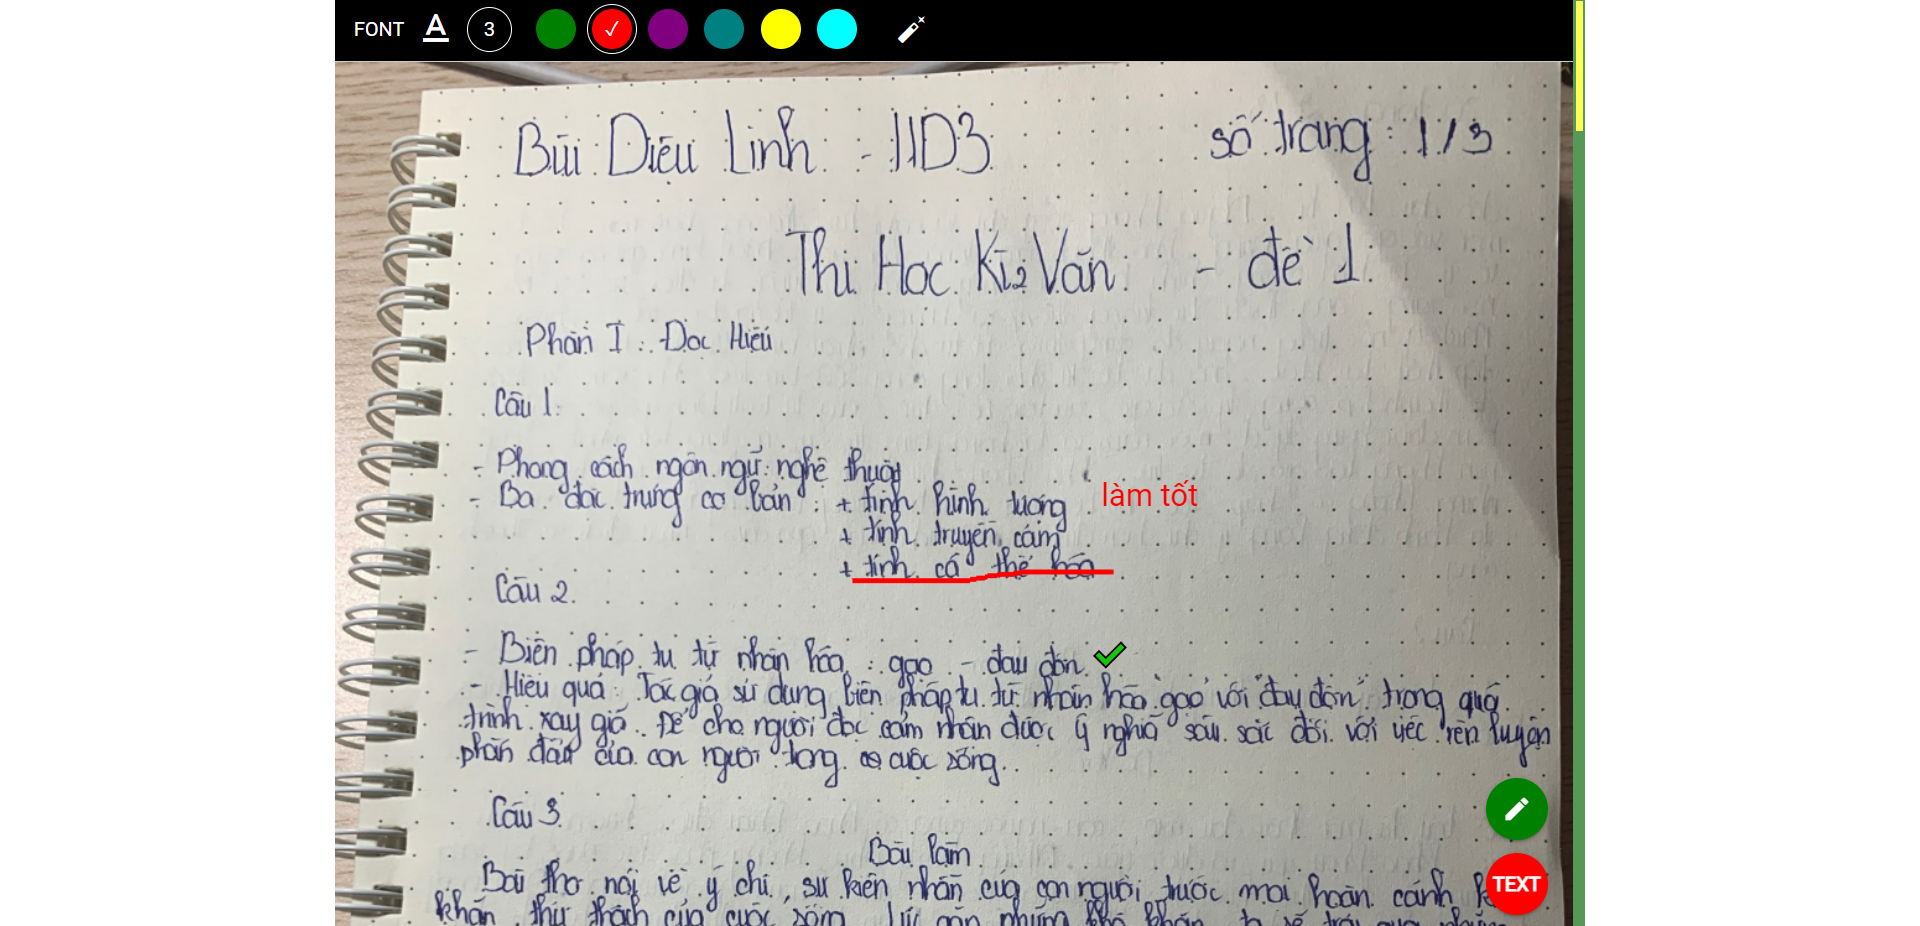 FONT A 3
Bùi Diệu Linh - 11D3
số trang : 1/3
Thi Học Kì 2 Văn - đề 1
Phần I : Đọc Hiểu
Câu 1
- Phong cách ngôn ngữ : nghệ thuật
- Ba đặc trưng cơ bản : + tính hình tượng
làm tốt
+ tính truyền cảm
+ tính cá thể hóa
Câu 2.
- Biện pháp tu từ nhân hóa : gạo - đau đớn.
- Hiệu quả : Tác giả sử dụng biện pháp tu từ nhân hóa "gạo" với "đau đớn" trong quá
trình xay giã. Để cho người đọc cảm nhận được ý nghĩa sâu sắc đối với việc rèn luyện
phấn đấu của con người trong cuộc sống.
Câu 3
Bài làm
Bài thơ nói về ý chí, sự kiên nhẫn của con người trước mọi hoàn cảnh
khăn, thử thách của cuộc sống.
TEXT